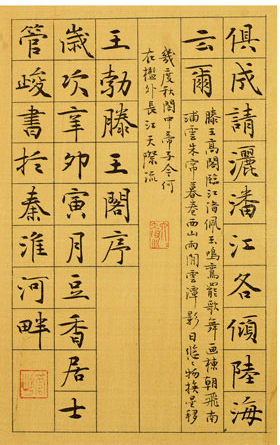 俱成請灑潘江各傾陸海
云爾
滕王高閣臨江渚佩玉鳴鸞罷歌舞画棟朝飛南
浦雲朱帘暮卷西山雨閒雲潭影日悠〻物換星移
幾度秋閣中帝子今何
在檻外長江天際流
王勃滕王閣序
歲次辛卯寅月豆香居士
管峻書於秦淮河畔